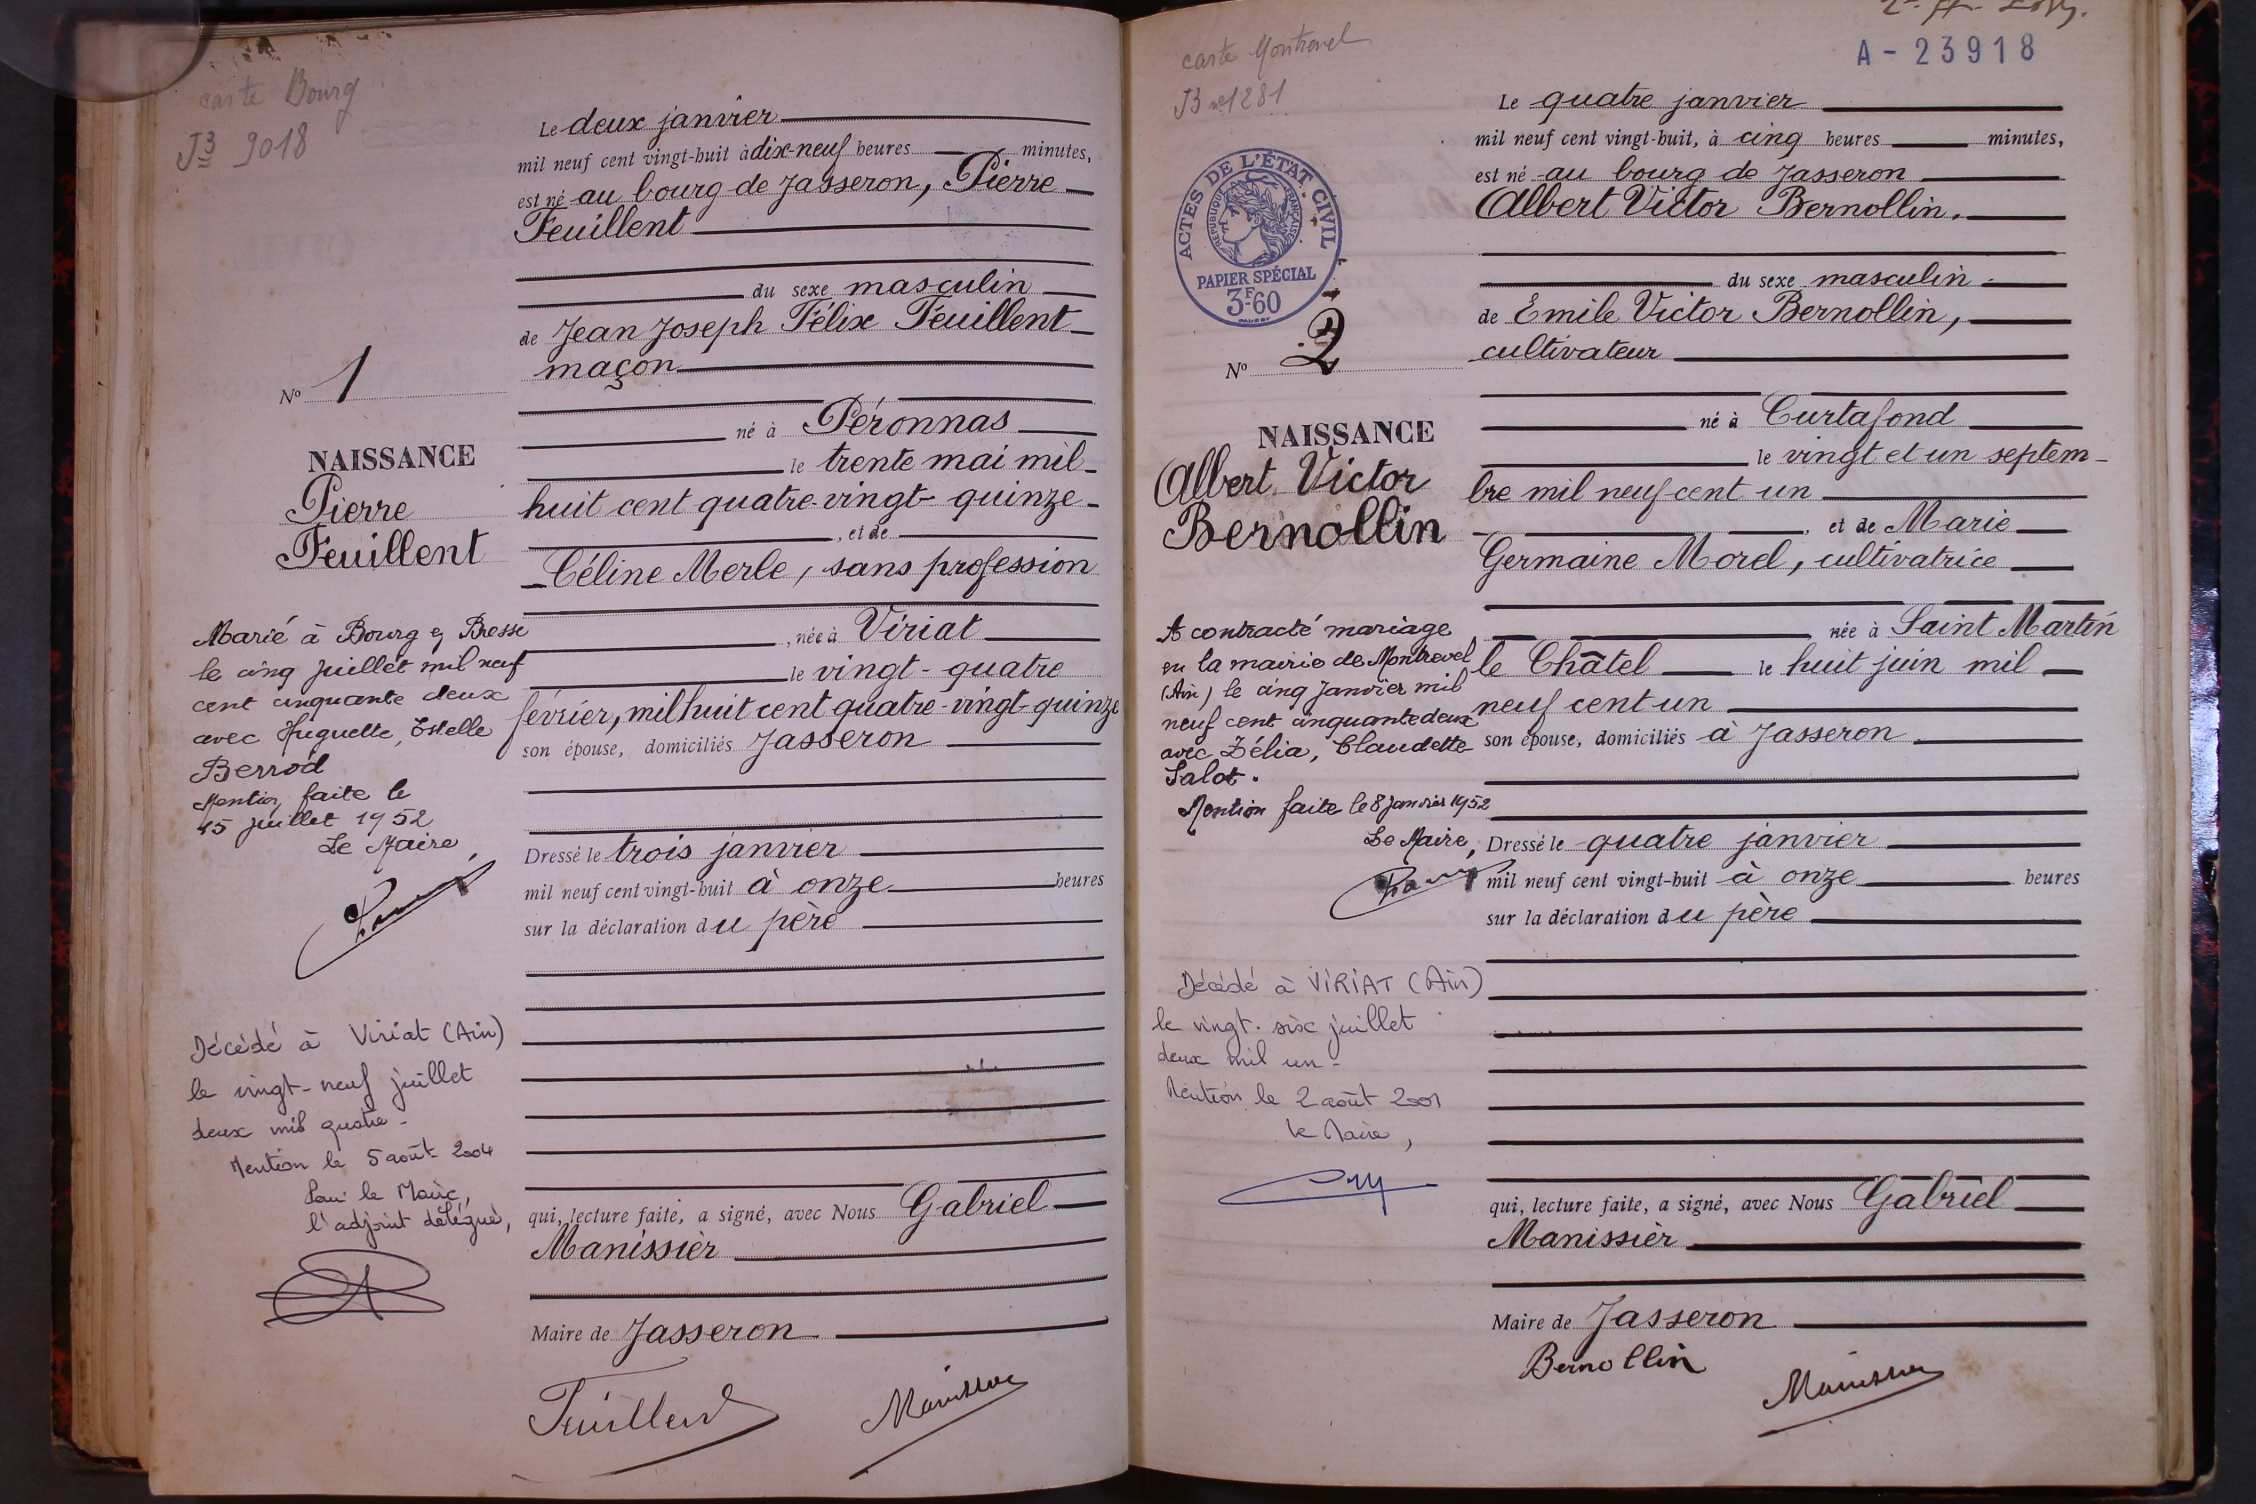 carte Bourg
J3 9018
Le deux janvier
mil neuf cent vingt-huit à dix-neuf heures minutes,
est né au bourg de Jasseron, Pierre
Feuillent
du sexe masculin
de Jean Joseph Félix Feuillent
maçon
né à Péronnas
le trente mai mil
huit cent quatre-vingt-quinze
, et de
Céline Merle, sans profession
, née à Viriat
le vingt-quatre
février, mil huit cent quatre-vingt-quinze
son épouse, domiciliés Jasseron
Dressé le trois janvier
mil neuf cent vingt-huit à onze heures
sur la déclaration du père
qui, lecture faite, a signé, avec Nous Gabriel
Manissier
Maire de Jasseron
Feuillent
Manissier
No 1
NAISSANCE
Pierre
Feuillent
Marié à Bourg en Bresse
le cinq juillet mil neuf
cent cinquante deux
avec Huguette, Estelle
Berrod
Mention faite le
15 juillet 1952
Le Maire,
Décédé à Viriat (Ain)
le vingt-neuf juillet
deux mil quatre -
Mention le 5 août 2004
Pour le Maire,
l'adjoint délégué,
carte Montrevel
J3 n°1281
A - 23918
ACTES DE L'ÉTAT CIVIL
RÉPUBLIQUE FRANÇAISE
PAPIER SPÉCIAL
3F60
No 2
NAISSANCE
Albert Victor
Bernollin
A contracté mariage
en la mairie de Montrevel
(Ain) le cinq Janvier mil
neuf cent cinquante deux
avec Zélia, Claudette
Salot.
Mention faite le 8 janvier 1952
Le Maire,
Décédé à VIRIAT (Ain)
le vingt-six juillet
deux mil un -
Mention le 2 août 2001
le Maire,
Le quatre janvier
mil neuf cent vingt-huit, à cinq heures minutes,
est né au bourg de Jasseron
Albert Victor Bernollin,
du sexe masculin
de Emile Victor Bernollin,
cultivateur
né à Curtafond
le vingt et un septem-
bre mil neuf cent un
, et de Marie
Germaine Morel, cultivatrice
, née à Saint Martin
le Châtel le huit juin mil
neuf cent un
son épouse, domiciliés à Jasseron
Dressé le quatre janvier
mil neuf cent vingt-huit à onze heures
sur la déclaration du père
qui, lecture faite, a signé, avec Nous Gabriel
Manissier
Maire de Jasseron
Bernollin
Manissier